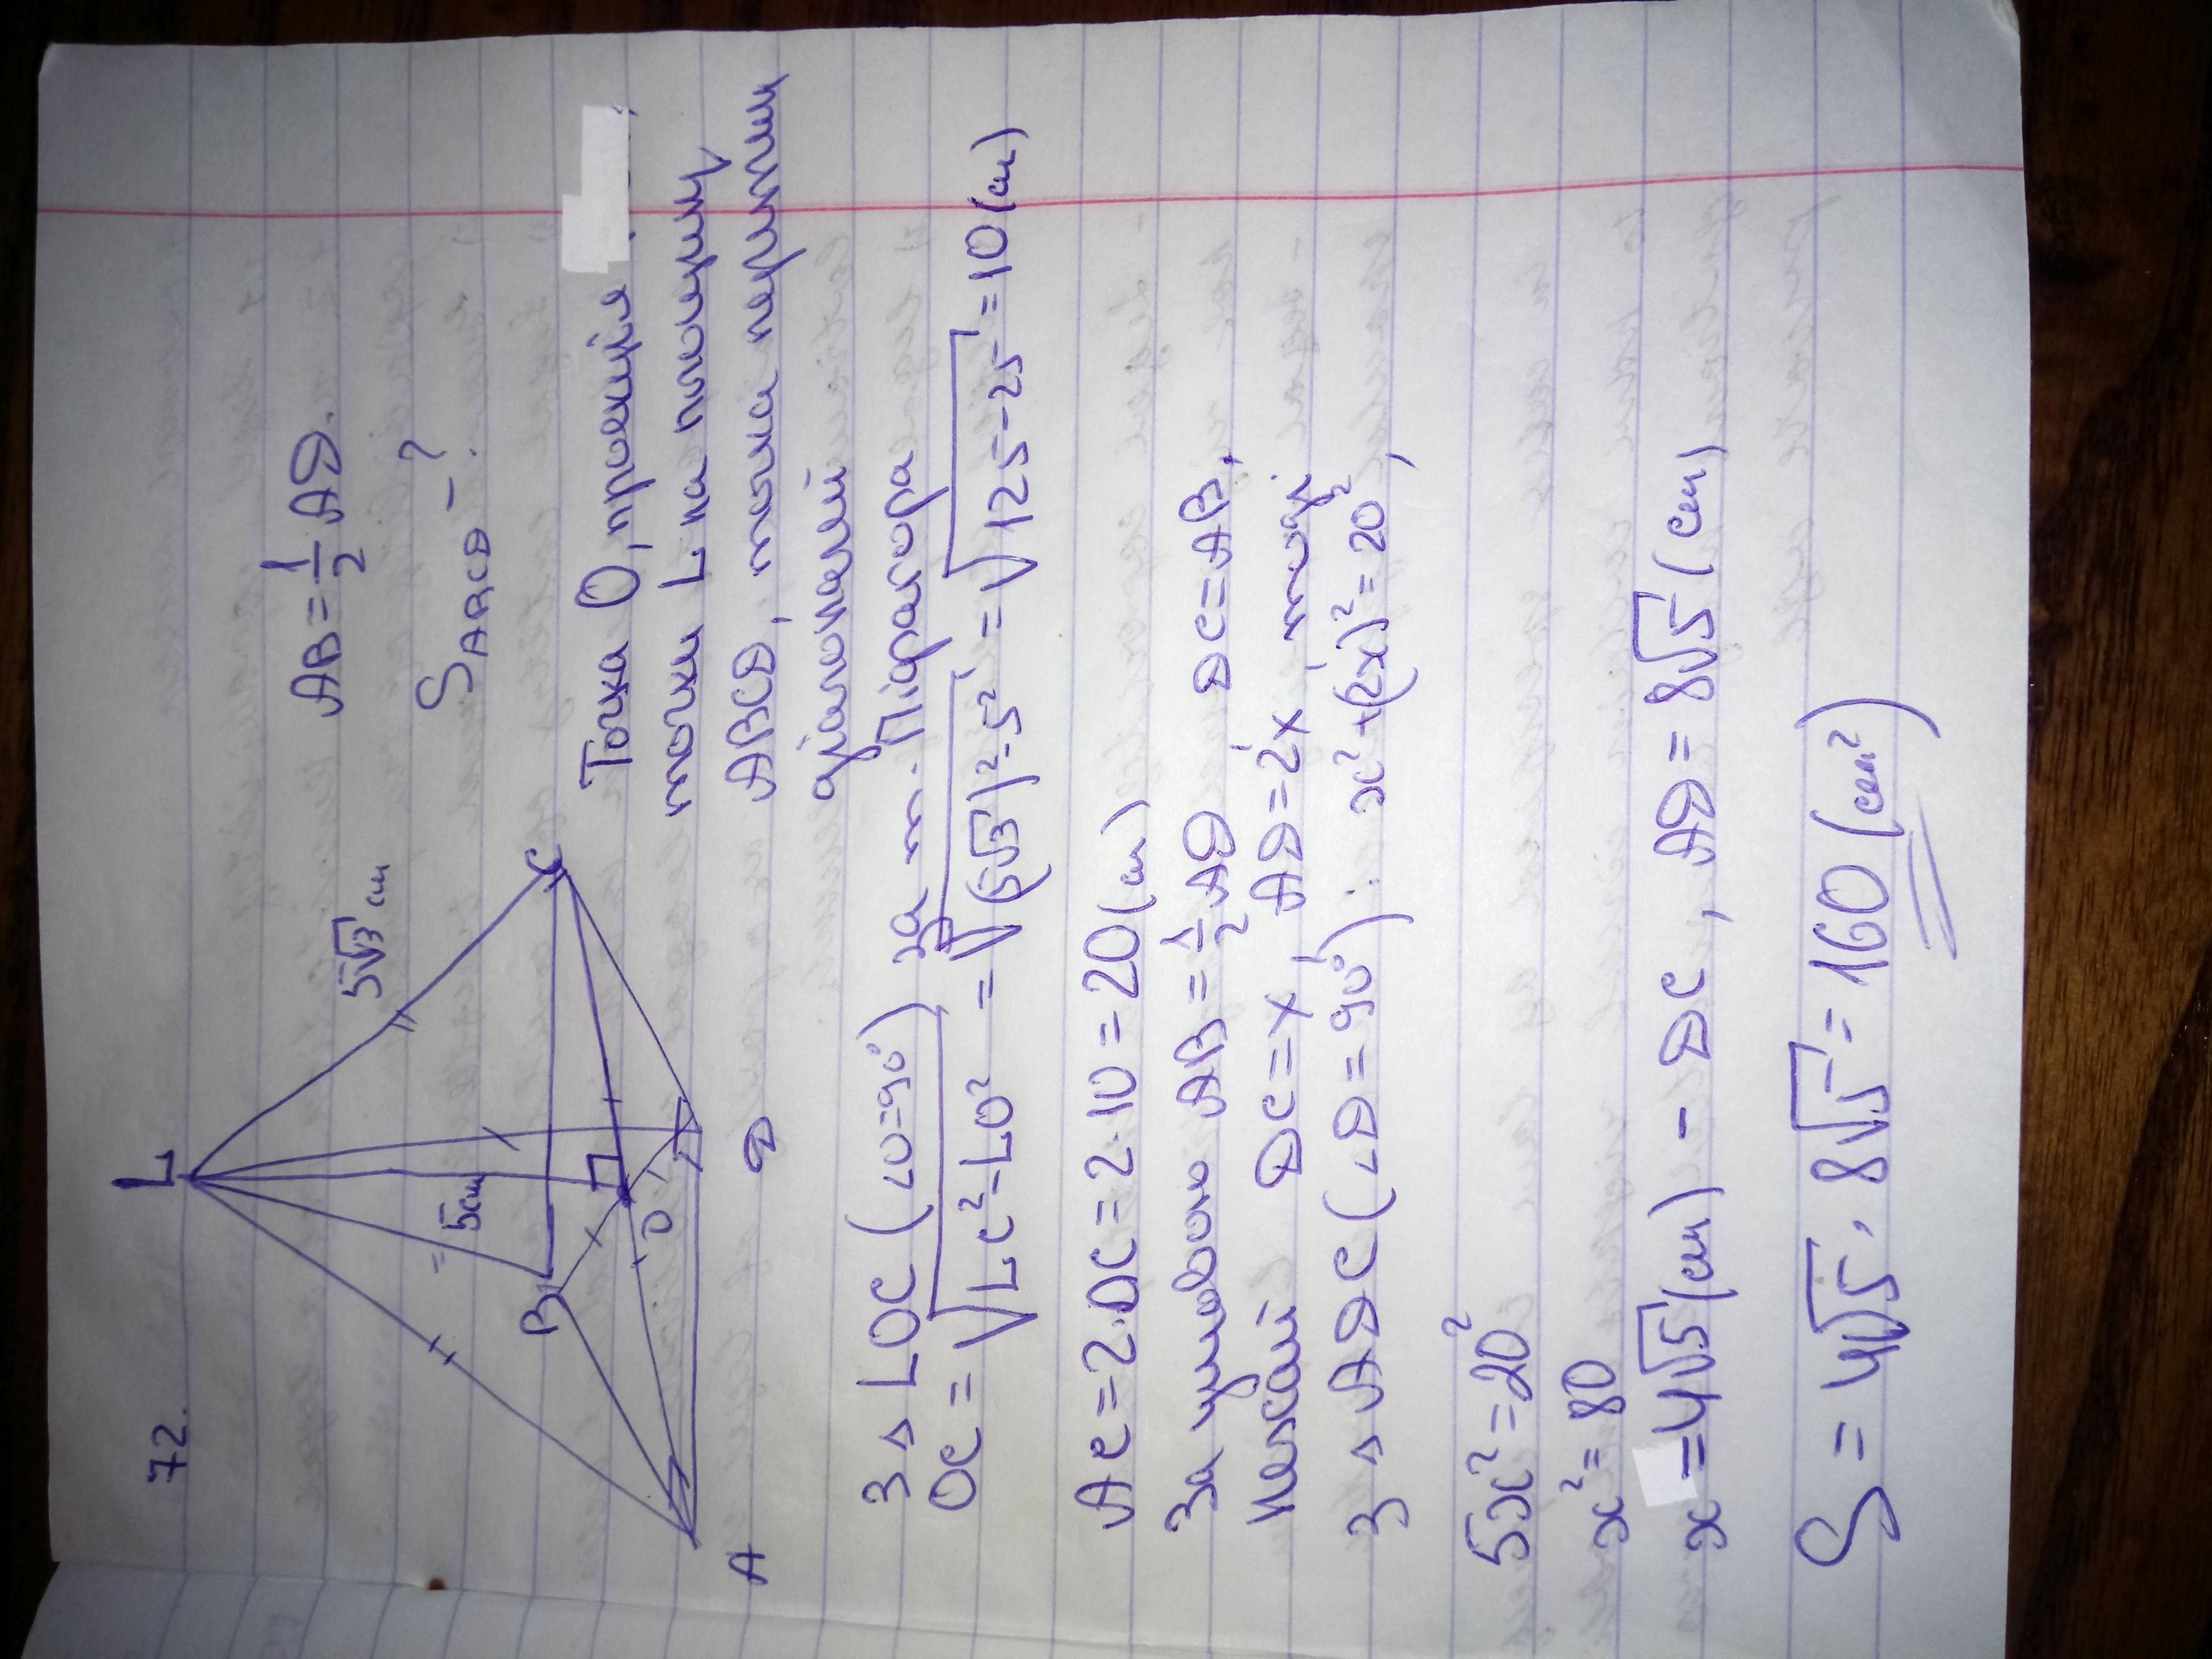 72.
L
5√3 см
5см
B
C
O
A
D
AB = 1/2 AD.
S ABCD - ?
Точка O, проекція
точки L на площину
ABCD, точка перетину
діагоналей
З △ LOC (∠O=90°) за т. Піфагора
OC = √(LC² - LO²) = √((5√3)² - 5²) = √(125-25) = 10 (см)
AC = 2·OC = 2·10 = 20 (см)
За умовою AB = 1/2 AD DC = AB,
Нехай DC = x, AD = 2x, тоді
З △ ADC (∠D = 90°): x² + (2x)² = 20²,
5x² = 20²
x² = 80
x = 4√5 (см) - DC, AD = 8√5 (см)
S = 4√5 · 8√5 = 160 (см²)